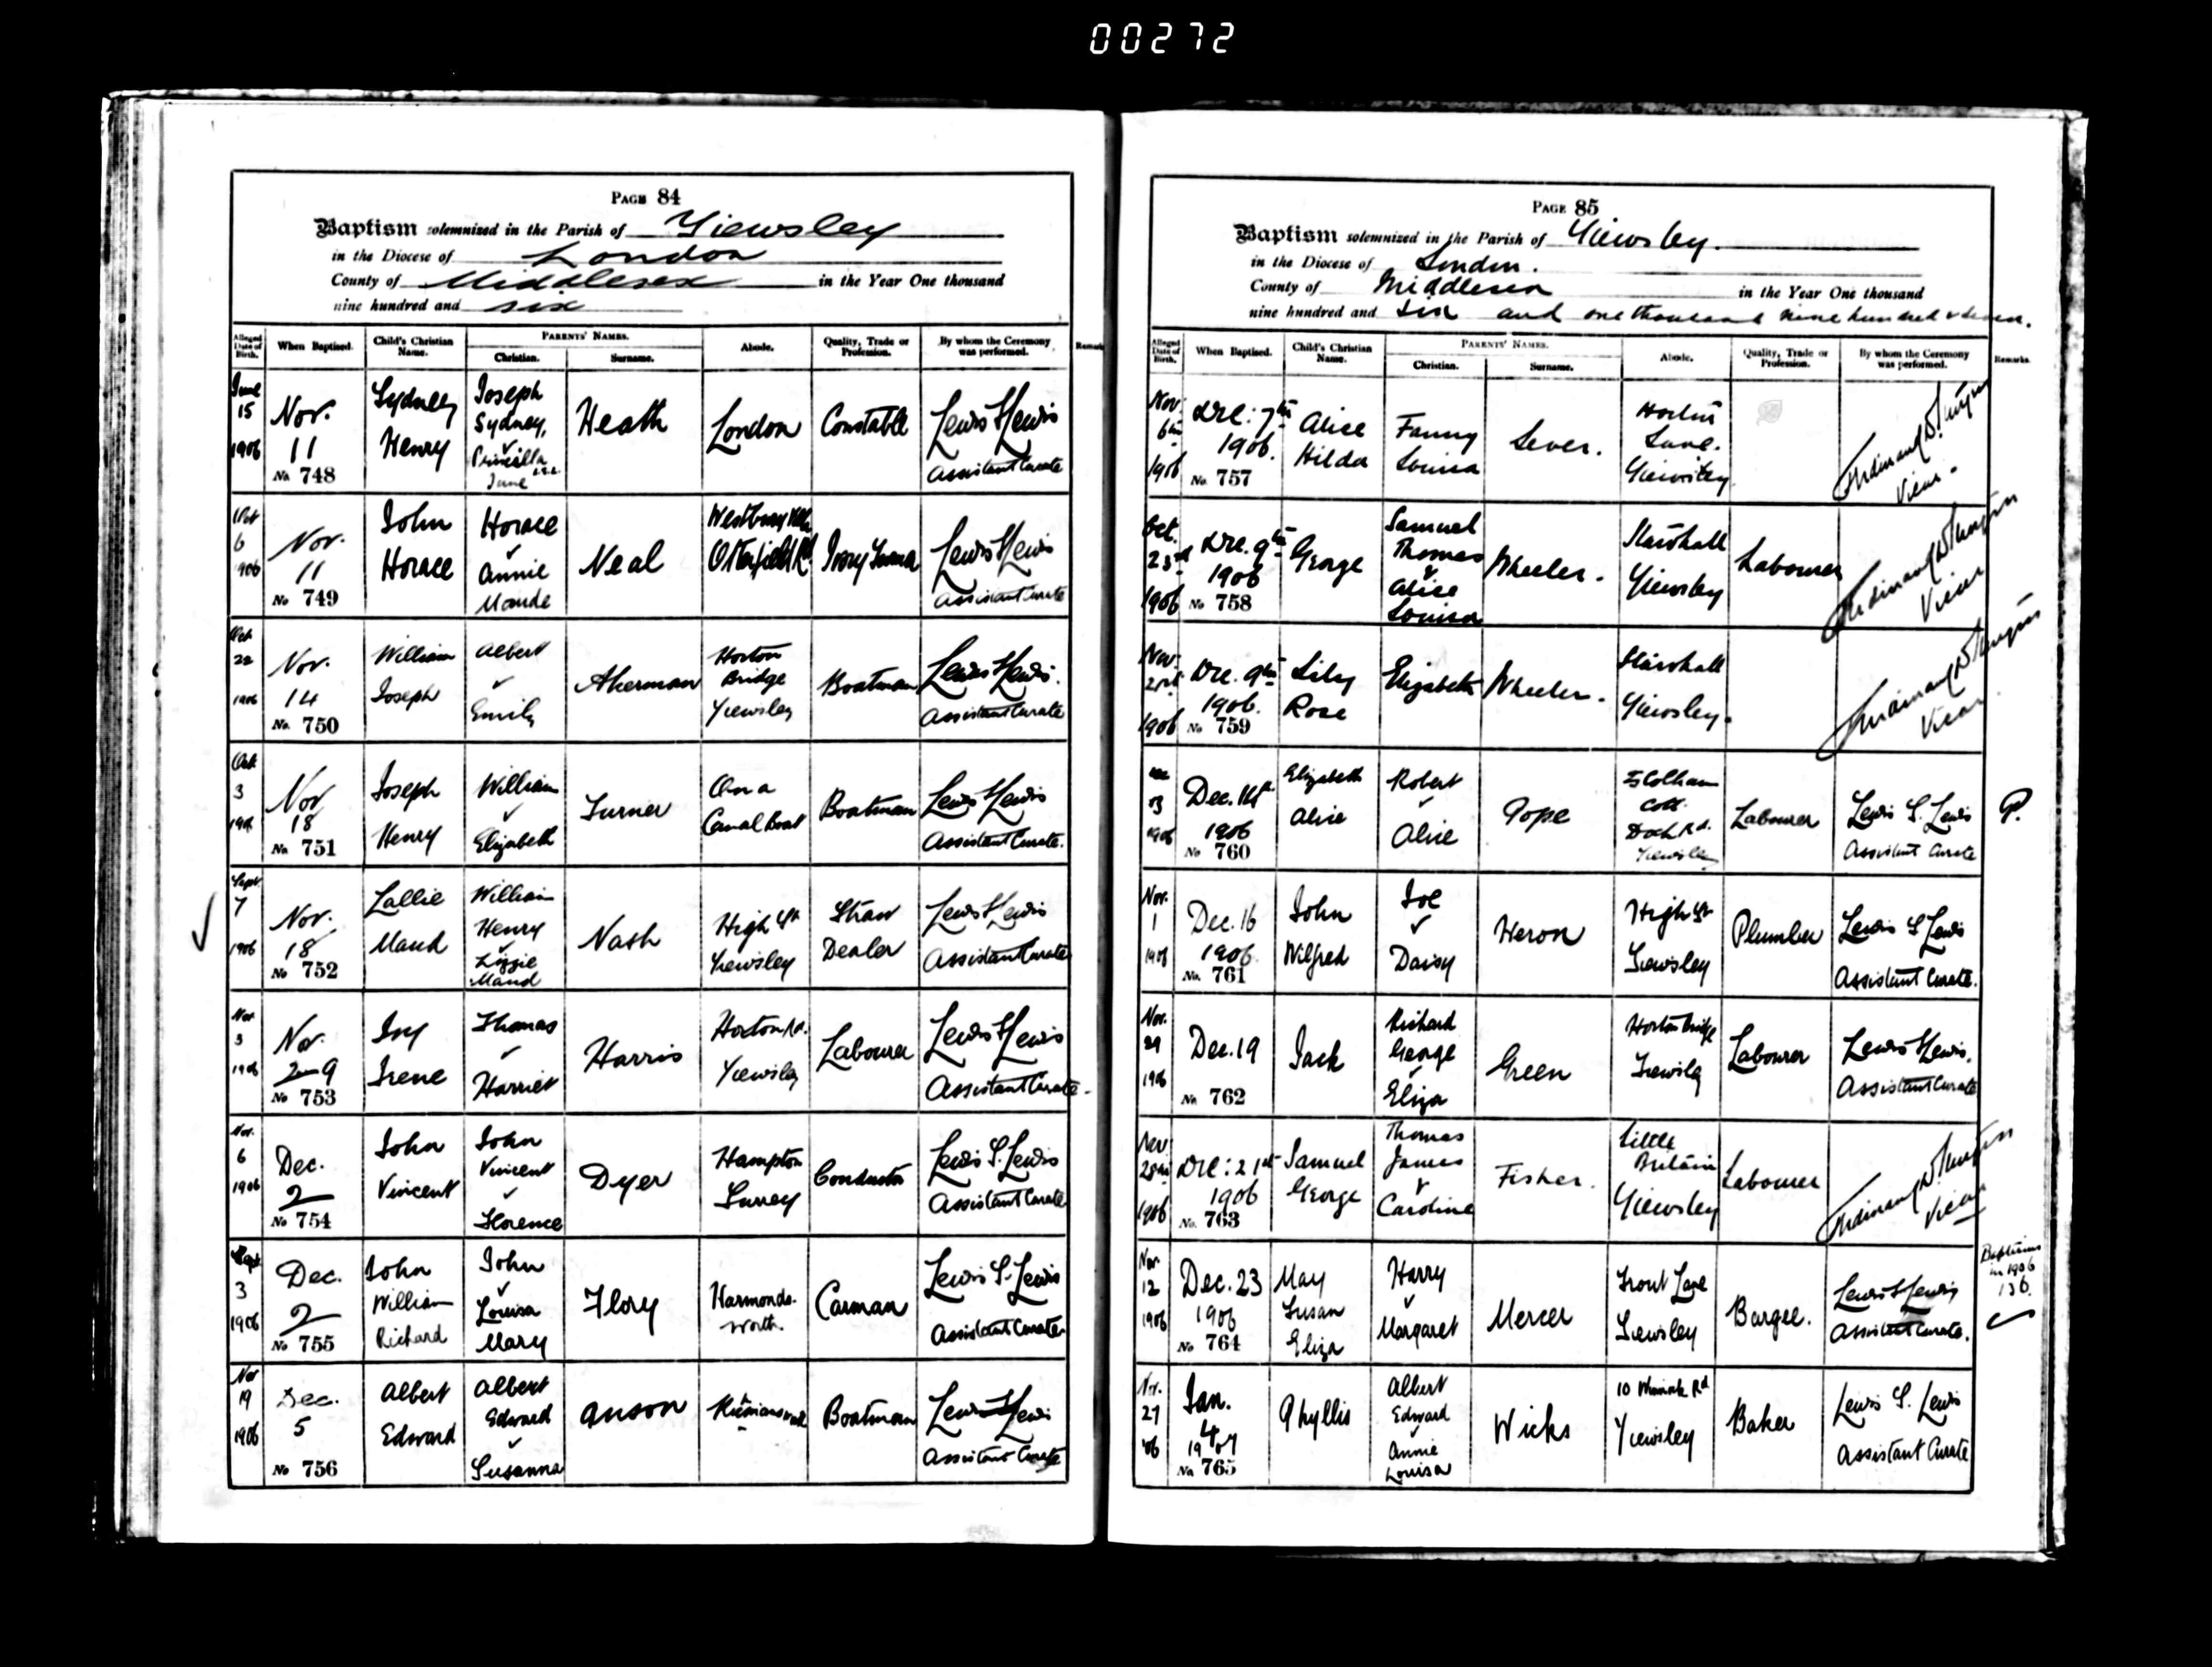 00272
PAGE 84
Baptism solemnized in the Parish of Yiewsley
in the Diocese of London
County of Middlesex in the Year One thousand
nine hundred and six
Alleged Date of Birth. When Baptised. Child's Christian Name. PARENTS' NAMES. Christian. Surname. Abode. Quality, Trade or Profession. By whom the Ceremony was performed. Remarks
June 15 1906 Nov. 11 No 748 Sydney Henry Joseph Sydney, Priscilla Jane Heath London Constable Lewis S Lewis Assistant Curate
Oct 6 1906 Nov. 11 No 749 John Horace Horace & Annie Maude Neal Otterfield Rd Ivory Turner Lewis S Lewis Assistant Curate
Oct 22 1906 Nov. 14 No. 750 William Joseph Albert & Emily Akerman Horton Bridge Yiewsley Boatman Lewis S Lewis. Assistant Curate
Oct 3 1906 Nov 18 No 751 Joseph Henry William & Elizabeth Turner On a Canal Boat Boatman Lewis S Lewis Assistant Curate.
Sept 7 1906 Nov. 18 No 752 Lallie Maud William Henry & Lizzie Maud Nash High St Yiewsley Straw Dealer Lewis S Lewis Assistant Curate
Nov 3 1906 Nov. 29 No 753 Ivy Irene Thomas & Harriet Harris Horton Rd. Yiewsley Labourer Lewis S Lewis Assistant Curate.
Nov. 6 1906 Dec. 2 No 754 John Vincent John Vincent & Florence Dyer Hampton Surrey Conductor Lewis S. Lewis Assistant Curate
Sept 3 1906 Dec. 2 No 755 John William Richard John & Louisa Mary Flory Harmondsworth. Carman Lewis S. Lewis Assistant Curate.
Nov 19 1906 Dec. 5 No 756 Albert Edward Albert Edward & Susanna Anson Boatman Lewis S Lewis Assistant Curate
PAGE 85
Baptism solemnized in the Parish of Yiewsley.
in the Diocese of London.
County of Middlesex in the Year One thousand
nine hundred and six and one thousand nine hundred & seven.
Alleged Date of Birth. When Baptised. Child's Christian Name. PARENTS' NAMES. Christian. Surname. Abode. Quality, Trade or Profession. By whom the Ceremony was performed. Remarks.
Nov. 6th 1906 Dec: 7th 1906. No. 757 Alice Hilda Fanny Louisa Sever. Horton Lane. Yiewsley Vicar.
Oct. 23rd 1906 Dec. 9th 1906 No 758 George Samuel Thomas & Alice Louisa Wheeler. Starshall Yiewsley Labourer Vicar
Nov. 1906 Dec. 9th 1906. No 759 Lily Rose Elizabeth Wheeler. Starshall Yiewsley. Vicar
1906 Dec. 14th 1906 No 760 Elizabeth Alice Robert & Alice Pope Colham Cott. Dock Rd. Yiewsley Labourer Lewis S. Lewis Assistant Curate P.
Nov. 1 1906 Dec. 16 1906. No. 761 John Wilfred Joe & Daisy Heron High St Yiewsley Plumber Lewis S Lewis Assistant Curate.
Nov. 29 1906 Dec. 19 No 762 Jack Richard George & Eliza Green Horton Bridge Yiewsley Labourer Lewis S Lewis. Assistant Curate
Nov 28th 1906 Dec: 21st 1906 No. 763 Samuel George Thomas James & Caroline Fisher. Little Britain Yiewsley Labourer Vicar
Nov 12 1906 Dec. 23 1906 No 764 May Susan Eliza Harry & Margaret Mercer Trout Lane Yiewsley Bargee. Lewis S Lewis Assistant Curate. Baptisms in 1906 136.
Nov. 27 06 Jan. 4 1907 No 765 Phyllis Albert Edward & Annie Louisa Wicks 10 Rd Yiewsley Baker Lewis S. Lewis Assistant Curate